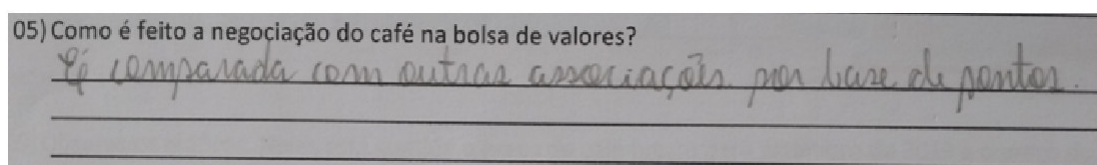 05) Como é feito a negociação do café na bolsa de valores?
É comparada com outras associações por base de pontos.